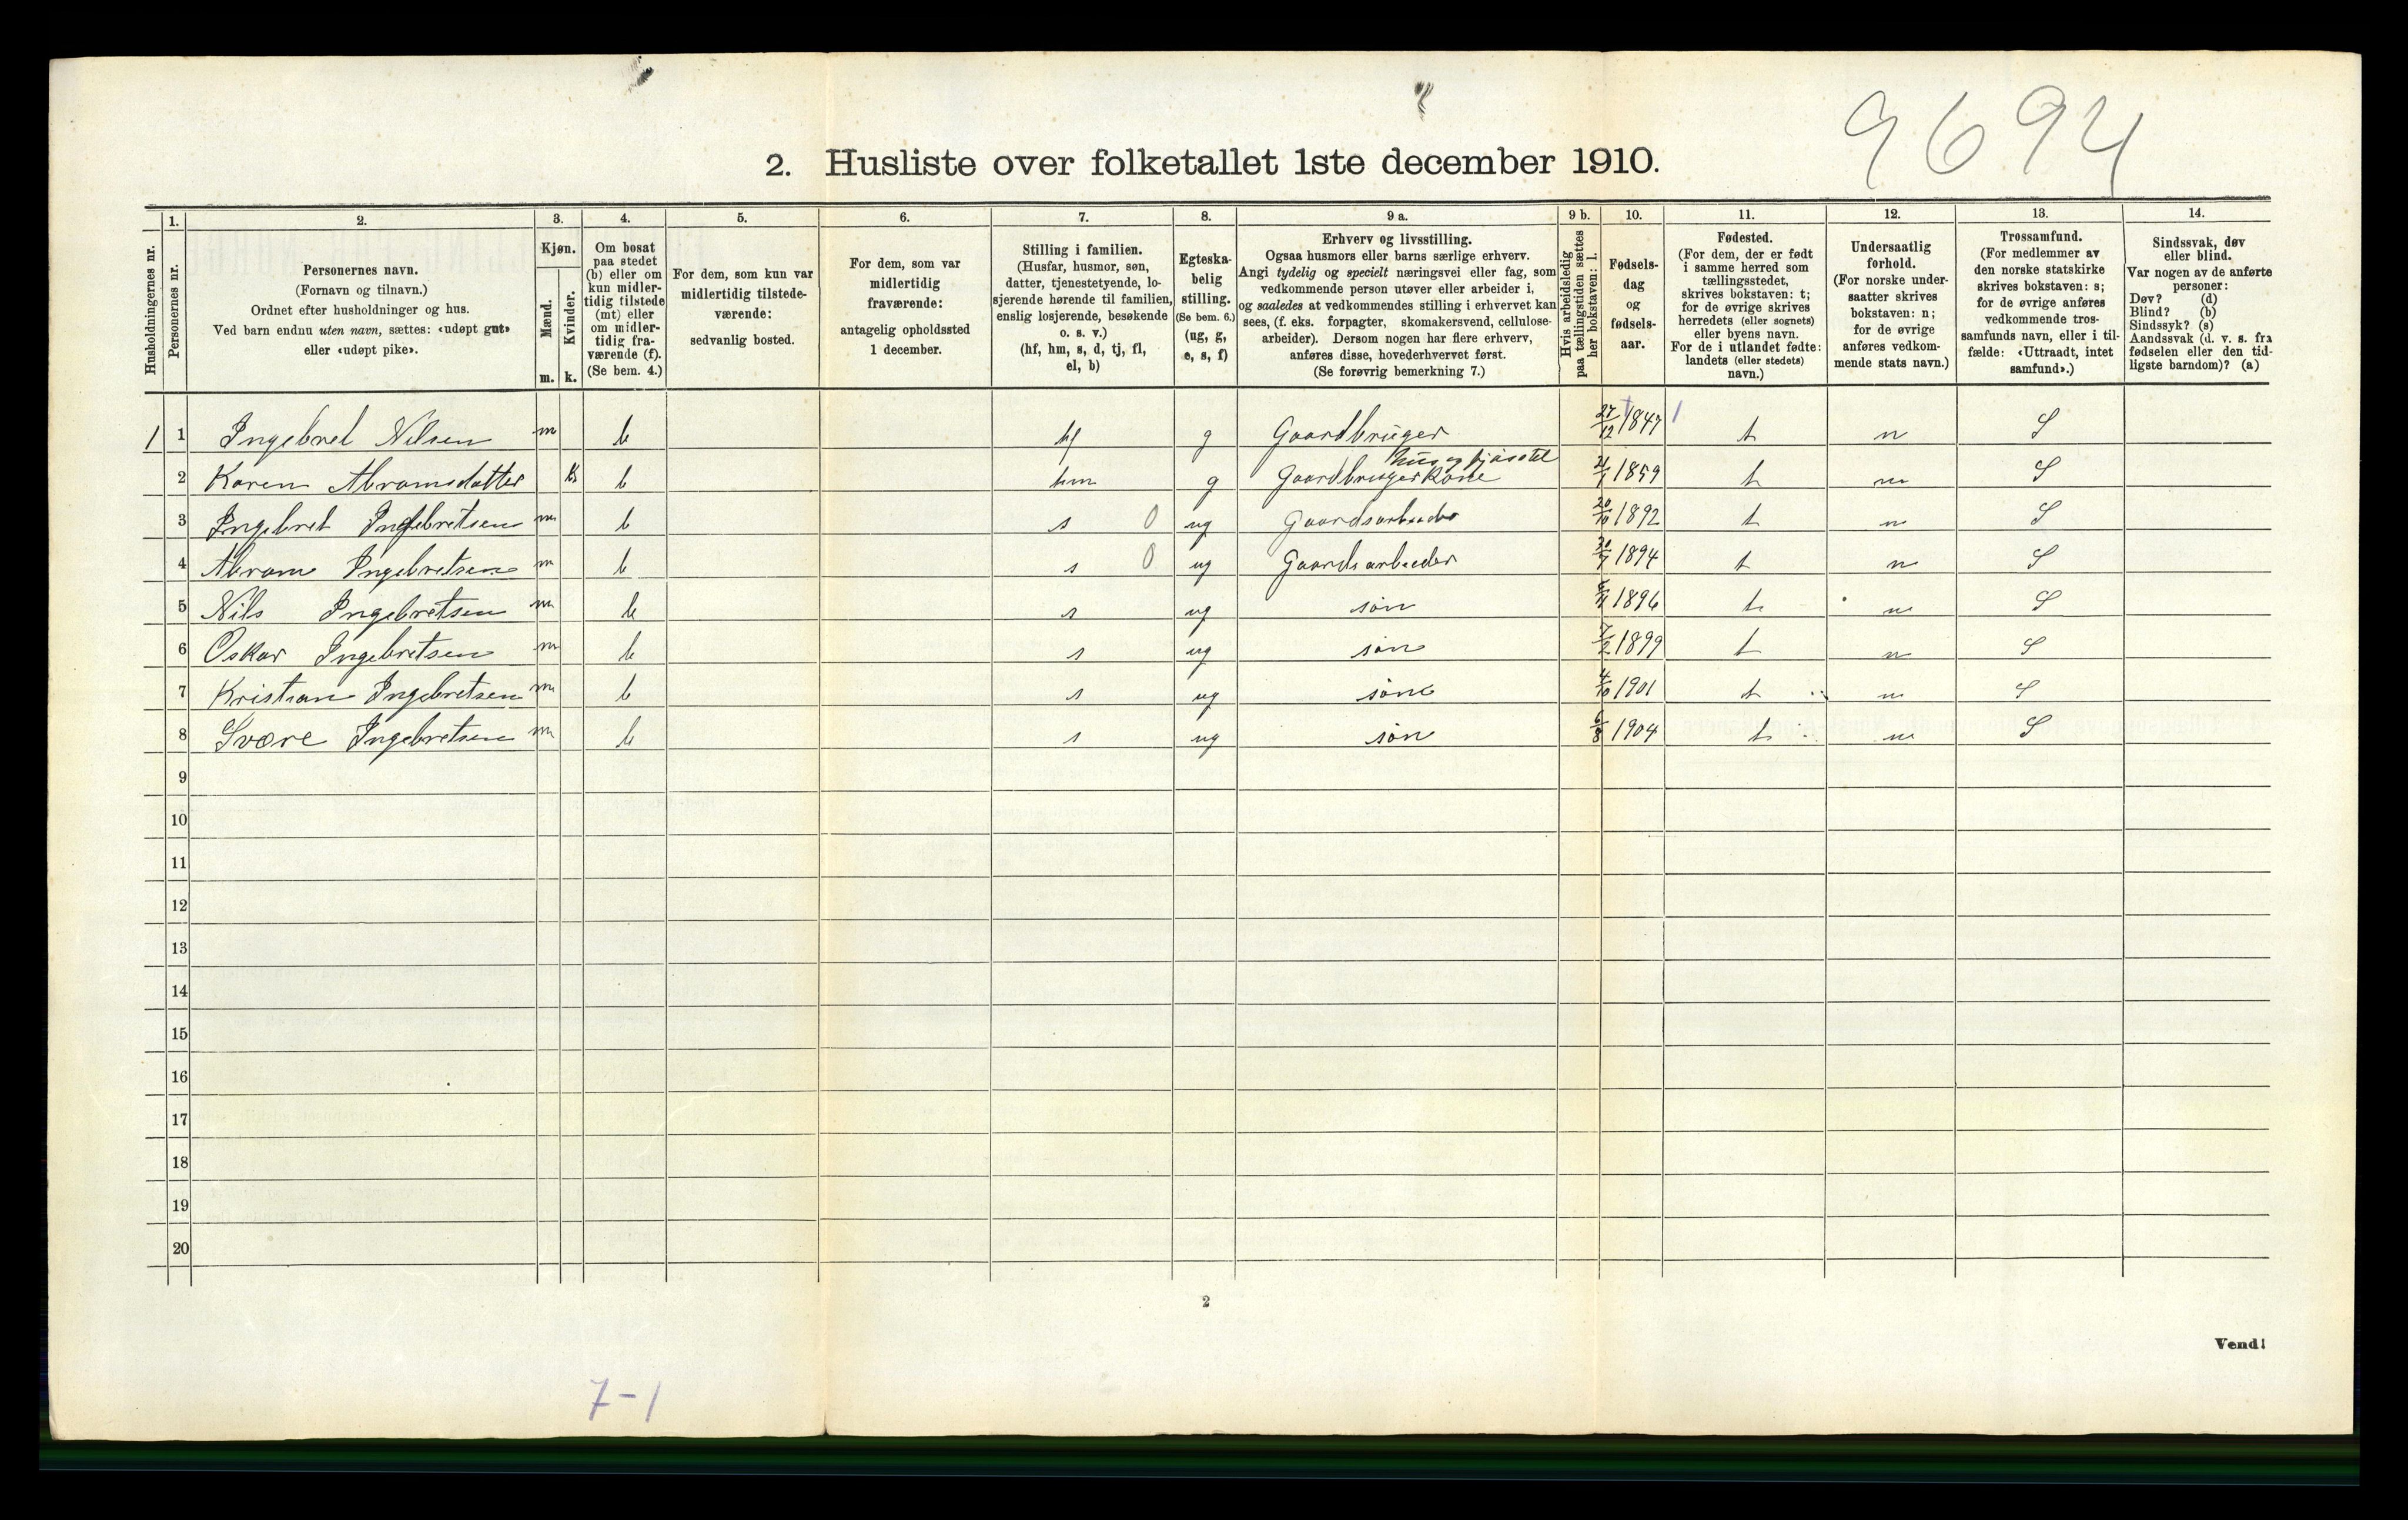 9694
2. Husliste over folketallet 1ste december 1910.
Husholdningernes nr.
1.
Personernes nr.
2.
Personernes navn.
(Fornavn og tilnavn.)
Ordnet efter husholdninger og hus.
Ved barn endnu uten navn, sættes: «udøpt gut»
eller «udøpt pike».
3.
Kjøn.
Mænd.
m.
Kvinder.
k.
4.
Om bosat
paa stedet
(b) eller om
kun midler-
tidig tilstede
(mt) eller
om midler-
tidig fra-
værende (f).
(Se bem. 4.)
5.
For dem, som kun var
midlertidig tilstede-
værende:
sedvanlig bosted.
6.
For dem, som var
midlertidig
fraværende:
antagelig opholdssted
1 december.
7.
Stilling i familien.
(Husfar, husmor, søn,
datter, tjenestetyende, lo-
sjerende hørende til familien,
enslig losjerende, besøkende
o. s. v.)
(hf, hm, s, d, tj, fl,
el, b)
8.
Egteska-
belig
stilling.
(Se bem. 6.)
(ug, g,
e, s, f)
9 a.
Erhverv og livsstilling.
Ogsaa husmors eller barns særlige erhverv.
Angi tydelig og specielt næringsvei eller fag, som
vedkommende person utøver eller arbeider i,
og saaledes at vedkommendes stilling i erhvervet kan
sees, (f. eks. forpagter, skomakersvend, cellulose-
arbeider). Dersom nogen har flere erhverv,
anføres disse, hovederhvervet først.
(Se forøvrig bemerkning 7.)
9 b.
Hvis arbeidsledig
paa tællingstiden sættes
her bokstaven: l.
10.
Fødsels-
dag
og
fødsels-
aar.
11.
Fødested.
(For dem, der er født
i samme herred som
tællingsstedet,
skrives bokstaven: t;
for de øvrige skrives
herredets (eller sognets)
eller byens navn.
For de i utlandet fødte:
landets (eller stedets)
navn.)
12.
Undersaatlig
forhold.
(For norske under-
saatter skrives
bokstaven: n;
for de øvrige
anføres vedkom-
mende stats navn.)
13.
Trossamfund.
(For medlemmer av
den norske statskirke
skrives bokstaven: s;
for de øvrige anføres
vedkommende tros-
samfunds navn, eller i til-
fælde: «Uttraadt, intet
samfund».)
14.
Sindssvak, døv
eller blind.
Var nogen av de anførte
personer:
Døv? (d)
Blind? (b)
Sindssyk? (s)
Aandssvak (d. v. s. fra
fødselen eller den tid-
ligste barndom)? (a)
1 1 Ingebret Nilsen m b hf g Gaardbruger 27/12 1847 t n S
hus og fjøsstel
2 Karen Abramsdatter K b hm g Gaardbrugerkone 1859 t n S
3 Ingebret Ingebretsen m b s 0 ug Gaardsarbeider 20/10 1892 t n S
4 Abram Ingebretsen m b s 0 ug Gaardsarbeeder 1894 t n S
5 Nils Ingebretsen m b s ug søn 1896 t n S
6 Oskar Ingebretsen m b s ug søn 7/2 1899 t n S
7 Kristian Ingebretsen m b s ug søn 4/10 1901 t n S
8 Svære Ingebretsen m b s ug søn 6/8 1904 t n S
9
10
11
12
13
14
15
16
17
18
19
20
2
Vend!
7-1